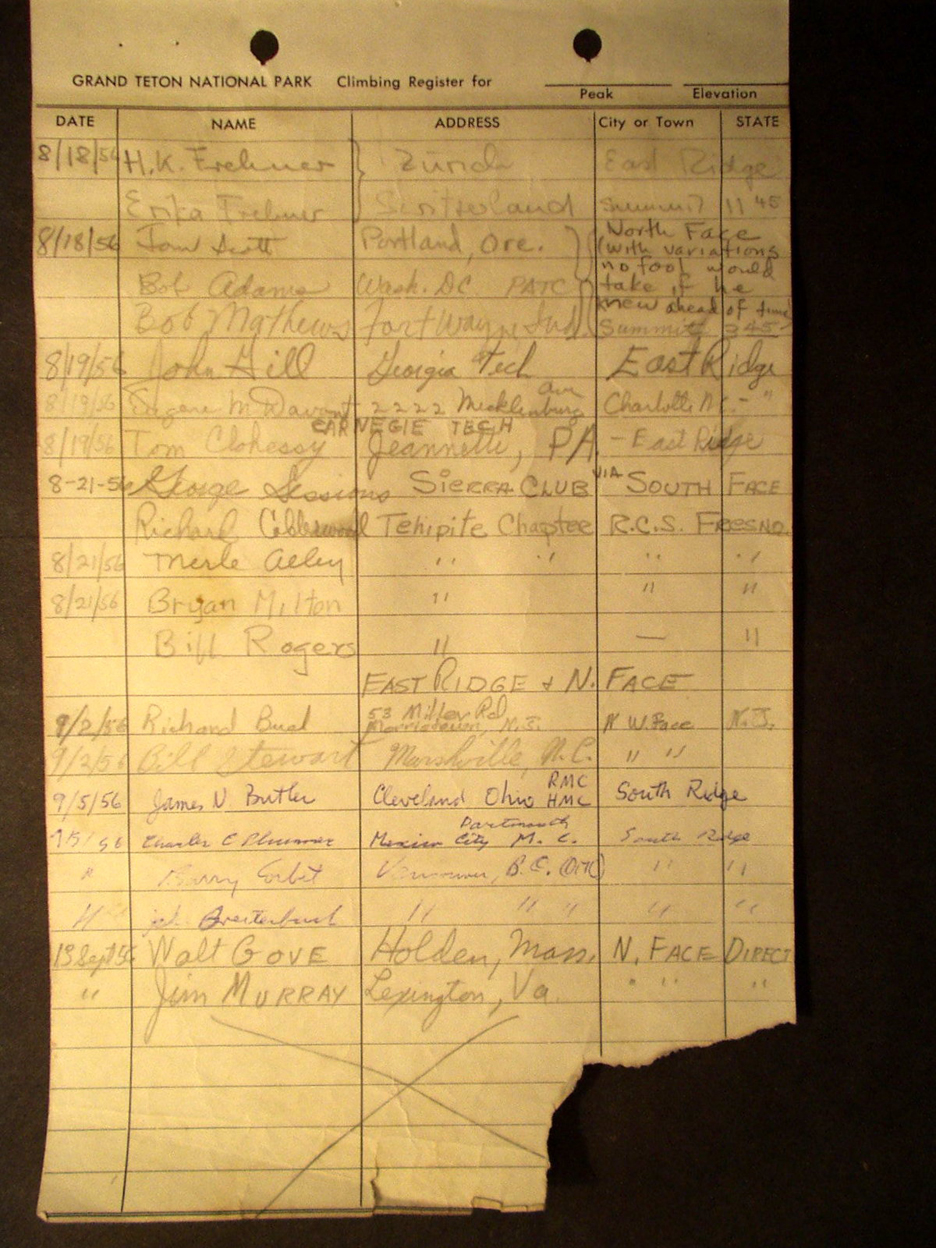 GRAND TETON NATIONAL PARK Climbing Register for
Peak Elevation
DATE NAME ADDRESS City or Town STATE
8/18/56 H.K. Zürich East Ridge
Erika Switzerland Summit 11 45
8/18/56 Tom Scott Portland, Ore. North Face
(with variations
no fool would
Bob Adams Wash. DC PATC take if he
knew ahead of time
Bob Mathews Fort Wayne, Ind. Summit 345
8/19/56 John Gill Georgia Tech East Ridge
8/19/56 Eugene M. Davant 2222 Mecklenburg Ave Charlotte N.C. - "
CARNEGIE TECH
8/19/56 Tom Clohessy Jeannette, PA - East Ridge
8-21-56 George Sessions SIERRA CLUB VIA SOUTH FACE
Richard Tehipite Chapter R.C.S. FRESNO.
8/21/56 Merle Alley " " " "
8/21/56 Bryan Milton " " "
Bill Rogers " — "
EAST RIDGE & N. FACE
9/2/56 Richard 53 Miller Rd Morristown, N.J. N.W. Face N.J.
9/2/56 Bill Stewart Marshville, N.C. " "
9/5/56 James N. Butler Cleveland Ohio RMC HMC South Ridge
Dartmouth
9/5/56 Charles C Plummer Mexico City M. C. South Ridge
" Barry Corbet Vancouver, B.C. " "
" Breitenbach " " " " "
13 Sept 56 Walt GOVE Holden, Mass. N. FACE DIRECT
" Jim MURRAY Lexington, Va. " " "